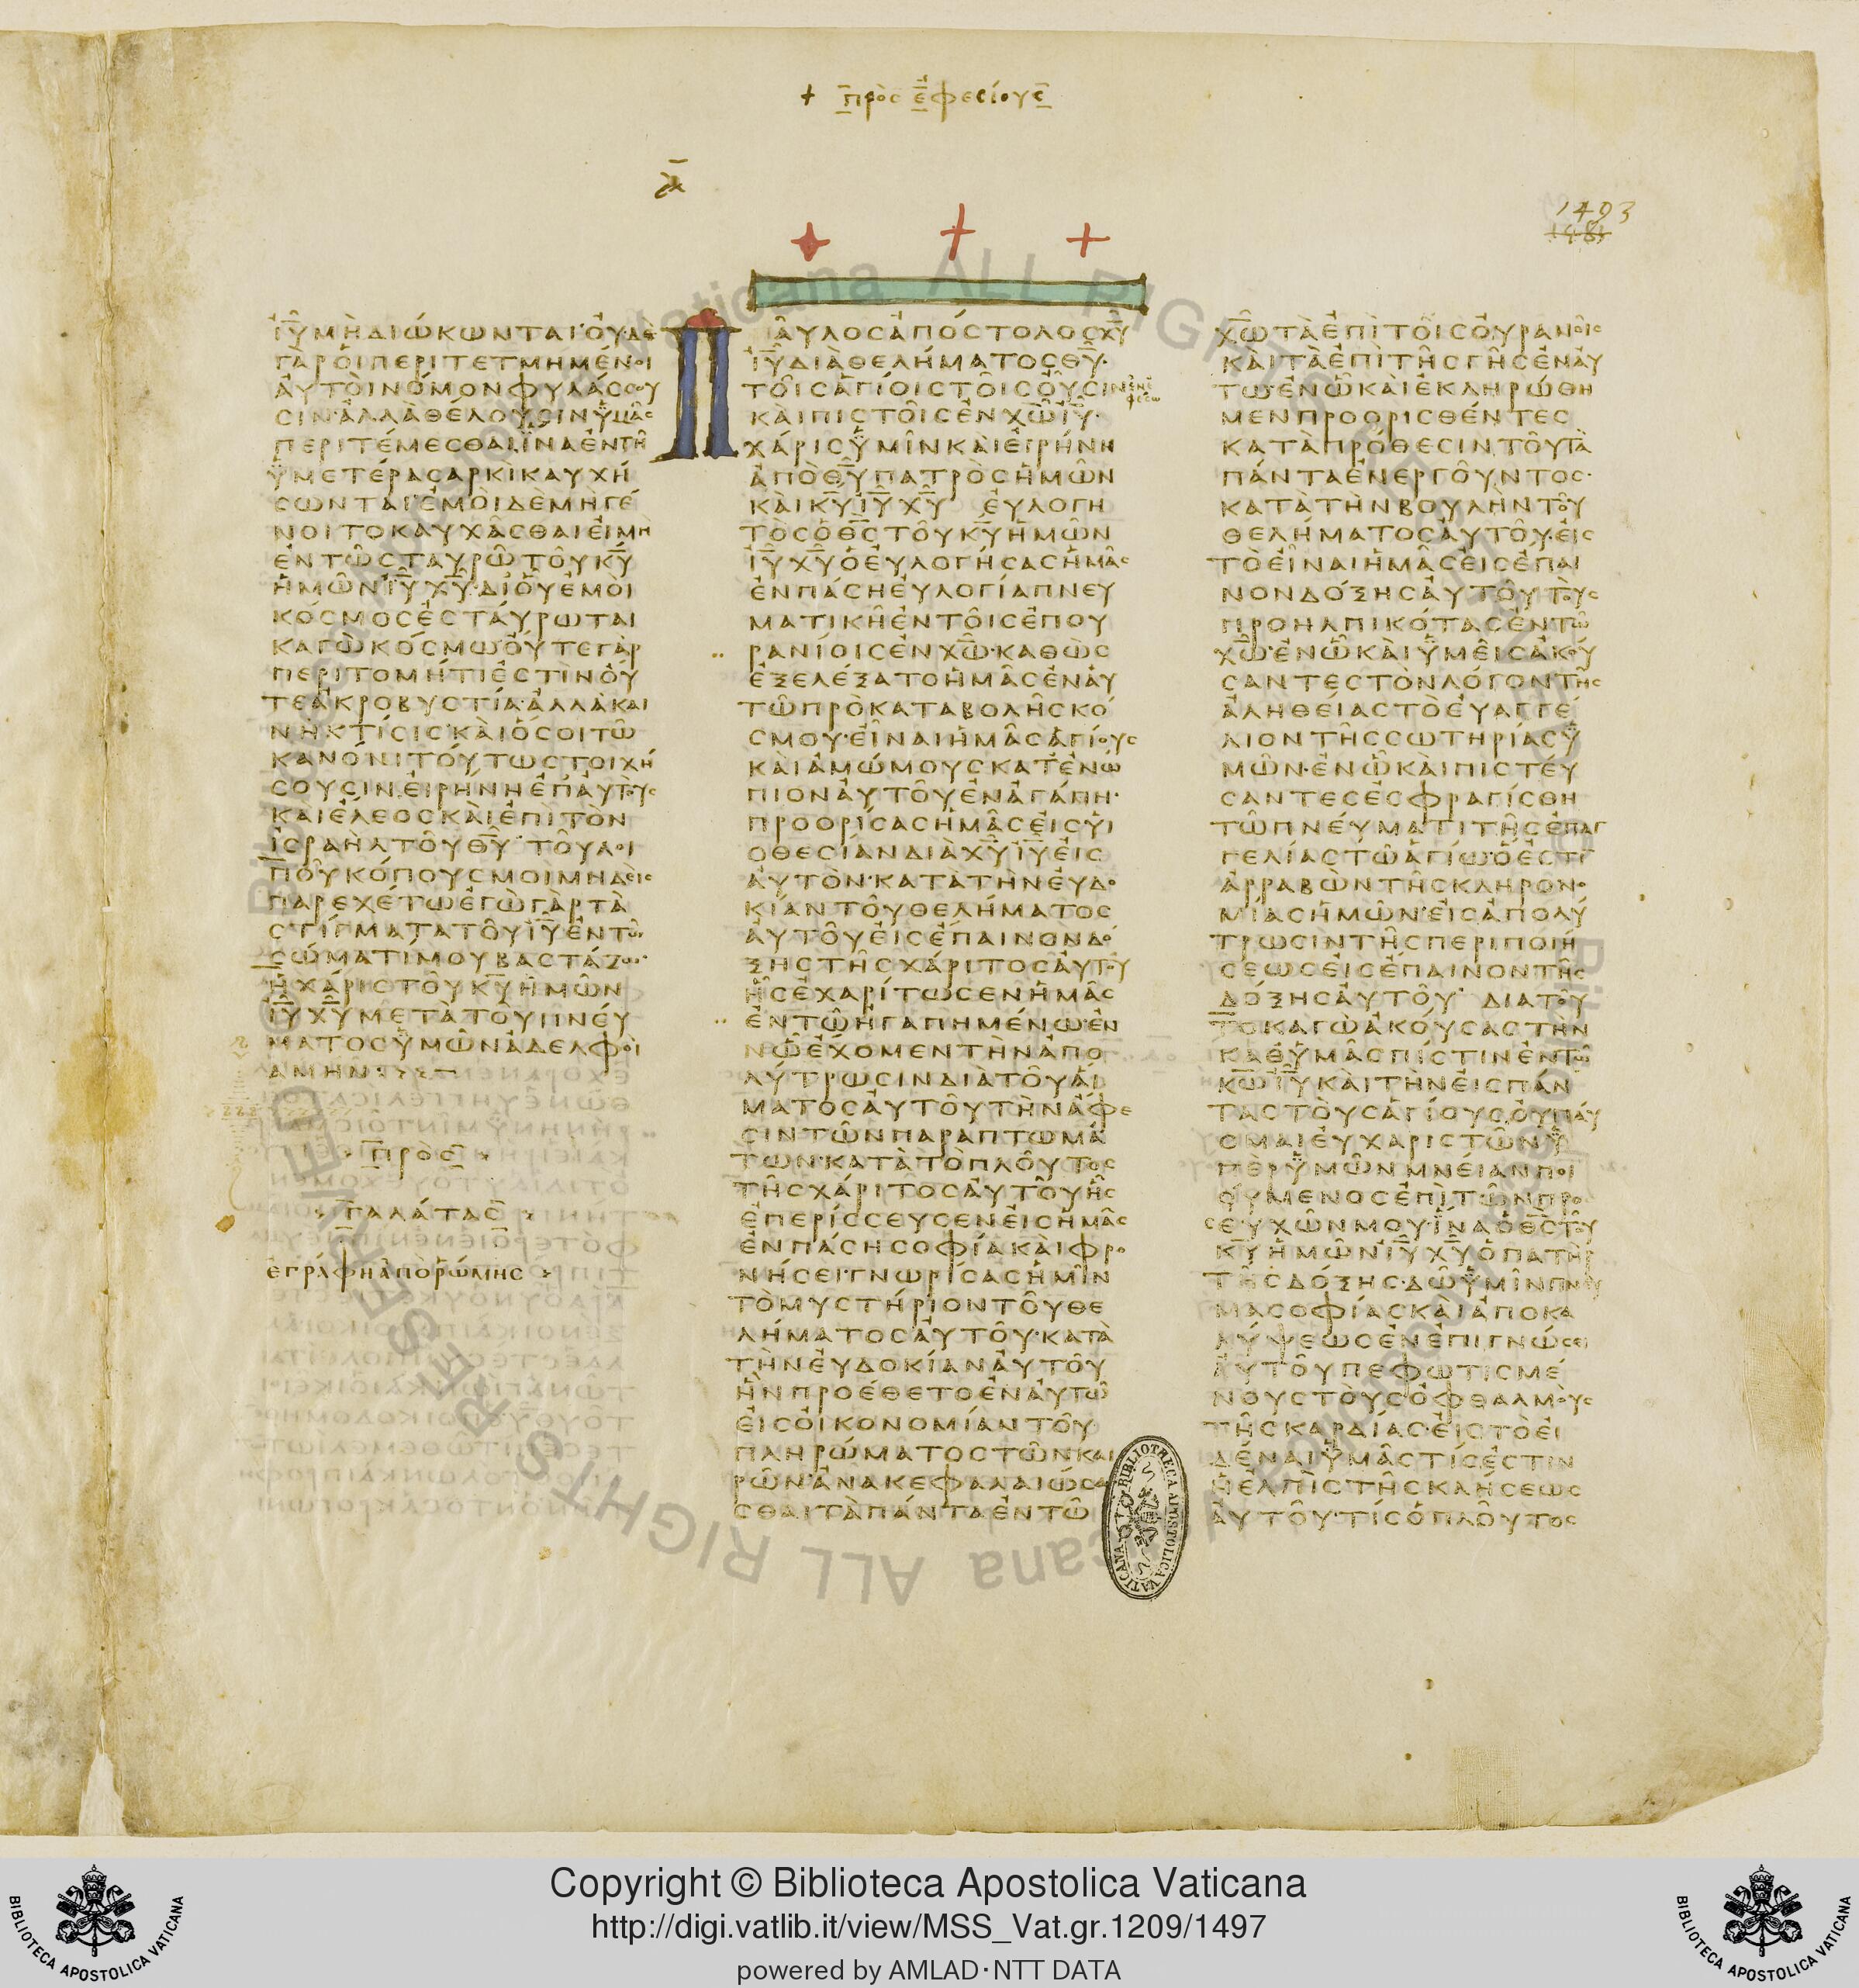 + πρὸς ἐφεσίους
ᾱ
1493
ΙΥ ΜΗΔΙΩΚΩΝΤΑΙ·ΟΥΔΕ
ΓΑΡΟΙΠΕΡΙΤΕΤΜΗΜΕΝΟΙ
ΑΥΤΟΙΝΟΜΟΝΦΥΛΑΣΣΟΥ
ΣΙΝ·ΑΛΛΑΘΕΛΟΥΣΙΝΥΜΑΣ
ΠΕΡΙΤΕΜΕΣΘΑΙ·ΙΝΑΕΝΤΗ
ΥΜΕΤΕΡΑΣΑΡΚΙΚΑΥΧΗ
ΣΩΝΤΑΙ·ΕΜΟΙΔΕΜΗΓΕ
ΝΟΙΤΟΚΑΥΧΑΣΘΑΙΕΙΜΗ
ΕΝΤΩΣΤΑΥΡΩΤΟΥΚΥ
ΗΜΩΝΙΥΧΥ·ΔΙΟΥΕΜΟΙ
ΚΟΣΜΟΣΕΣΤΑΥΡΩΤΑΙ
ΚΑΓΩΚΟΣΜΩ·ΟΥΤΕΓΑΡ
ΠΕΡΙΤΟΜΗΤΙΕΣΤΙΝΟΥ
ΤΕΑΚΡΟΒΥΣΤΙΑ·ΑΛΛΑΚΑΙ
ΝΗΚΤΙΣΙΣ·ΚΑΙΟΣΟΙΤΩ
ΚΑΝΟΝΙΤΟΥΤΩΣΤΟΙΧΗ
ΣΟΥΣΙΝ·ΕΙΡΗΝΗΕΠΑΥΤΟΥΣ
ΚΑΙΕΛΕΟΣΚΑΙΕΠΙΤΟΝ
ΙΣΡΑΗΛΤΟΥΘΥ ΤΟΥΛΟΙ
ΠΟΥΚΟΠΟΥΣΜΟΙΜΗΔΕΙΣ
ΠΑΡΕΧΕΤΩΕΓΩΓΑΡΤΑ
ΣΤΙΓΜΑΤΑΤΟΥΙΥΕΝΤΩ
ΣΩΜΑΤΙΜΟΥΒΑΣΤΑΖΩ·
ΗΧΑΡΙΣΤΟΥΚΥΗΜΩΝ
ΙΥΧΥΜΕΤΑΤΟΥΠΝΕΥ
ΜΑΤΟΣΥΜΩΝΑΔΕΛΦΟΙ
ΑΜΗΝ
ΠΡΟΣ
ΓΑΛΑΤΑΣ
ἐγράφη ἀπὸ ῥώμης
Π
ΑΥΛΟΣΑΠΟΣΤΟΛΟΣΧΥ
ΙΥΔΙΑΘΕΛΗΜΑΤΟΣΘΥ·
ΤΟΙΣΑΓΙΟΙΣΤΟΙΣΟΥΣΙΝ ἐν ἐφέσω
ΚΑΙΠΙΣΤΟΙΣΕΝΧΩΙΥ·
ΧΑΡΙΣΥΜΙΝΚΑΙΕΙΡΗΝΗ
ΑΠΟΘΥΠΑΤΡΟΣΗΜΩΝ
ΚΑΙΚΥΙΥΧΥ ΕΥΛΟΓΗ
ΤΟΣΟΘΣΤΟΥΚΥΗΜΩΝ
ΙΥΧΥΟΕΥΛΟΓΗΣΑΣΗΜΑΣ
ΕΝΠΑΣΗΕΥΛΟΓΙΑΠΝΕΥ
ΜΑΤΙΚΗΕΝΤΟΙΣΕΠΟΥ
ΡΑΝΙΟΙΣΕΝΧΩ·ΚΑΘΩΣ
ΕΞΕΛΕΞΑΤΟΗΜΑΣΕΝΑΥ
ΤΩΠΡΟΚΑΤΑΒΟΛΗΣΚΟ
ΣΜΟΥ·ΕΙΝΑΙΗΜΑΣΑΓΙΟΥΣ
ΚΑΙΑΜΩΜΟΥΣΚΑΤΕΝΩ
ΠΙΟΝΑΥΤΟΥΕΝΑΓΑΠΗ·
ΠΡΟΟΡΙΣΑΣΗΜΑΣΕΙΣΥΙ
ΟΘΕΣΙΑΝΔΙΑΧΥΙΥΕΙΣ
ΑΥΤΟΝ·ΚΑΤΑΤΗΝΕΥΔΟ
ΚΙΑΝΤΟΥΘΕΛΗΜΑΤΟΣ
ΑΥΤΟΥΕΙΣΕΠΑΙΝΟΝΔΟ
ΞΗΣΤΗΣΧΑΡΙΤΟΣΑΥΤΟΥ
ΗΣΕΧΑΡΙΤΩΣΕΝΗΜΑΣ
ΕΝΤΩΗΓΑΠΗΜΕΝΩ·ΕΝ
ΩΕΧΟΜΕΝΤΗΝΑΠΟ
ΛΥΤΡΩΣΙΝΔΙΑΤΟΥΑΙ
ΜΑΤΟΣΑΥΤΟΥΤΗΝΑΦΕ
ΣΙΝΤΩΝΠΑΡΑΠΤΩΜΑ
ΤΩΝ·ΚΑΤΑΤΟΠΛΟΥΤΟΣ
ΤΗΣΧΑΡΙΤΟΣΑΥΤΟΥΗΣ
ΕΠΕΡΙΣΣΕΥΣΕΝΕΙΣΗΜΑΣ
ΕΝΠΑΣΗΣΟΦΙΑΚΑΙΦΡΟ
ΝΗΣΕΙ·ΓΝΩΡΙΣΑΣΗΜΙΝ
ΤΟΜΥΣΤΗΡΙΟΝΤΟΥΘΕ
ΛΗΜΑΤΟΣΑΥΤΟΥ·ΚΑΤΑ
ΤΗΝΕΥΔΟΚΙΑΝΑΥΤΟΥ
ΗΝΠΡΟΕΘΕΤΟΕΝΑΥΤΩ
ΕΙΣΟΙΚΟΝΟΜΙΑΝΤΟΥ
ΠΛΗΡΩΜΑΤΟΣΤΩΝΚΑΙ
ΡΩΝ·ΑΝΑΚΕΦΑΛΑΙΩΣΑ
ΣΘΑΙΤΑΠΑΝΤΑΕΝΤΩ
ΧΩΤΑΕΠΙΤΟΙΣΟΥΡΑΝΟΙΣ
ΚΑΙΤΑΕΠΙΤΗΣΓΗΣΕΝΑΥ
ΤΩ·ΕΝΩΚΑΙΕΚΛΗΡΩΘΗ
ΜΕΝΠΡΟΟΡΙΣΘΕΝΤΕΣ
ΚΑΤΑΠΡΟΘΕΣΙΝΤΟΥΤΑ
ΠΑΝΤΑΕΝΕΡΓΟΥΝΤΟΣ·
ΚΑΤΑΤΗΝΒΟΥΛΗΝΤΟΥ
ΘΕΛΗΜΑΤΟΣΑΥΤΟΥ·ΕΙΣ
ΤΟΕΙΝΑΙΗΜΑΣΕΙΣΕΠΑΙ
ΝΟΝΔΟΞΗΣΑΥΤΟΥΤΟΥΣ
ΠΡΟΗΛΠΙΚΟΤΑΣΕΝΤΩ
ΧΩ·ΕΝΩΚΑΙΥΜΕΙΣΑΚΟΥ
ΣΑΝΤΕΣΤΟΝΛΟΓΟΝΤΗΣ
ΑΛΗΘΕΙΑΣΤΟΕΥΑΓΓΕ
ΛΙΟΝΤΗΣΣΩΤΗΡΙΑΣΥ
ΜΩΝ·ΕΝΩΚΑΙΠΙΣΤΕΥ
ΣΑΝΤΕΣΕΣΦΡΑΓΙΣΘΗ
ΤΩΠΝΕΥΜΑΤΙΤΗΣΕΠΑΓ
ΓΕΛΙΑΣΤΩΑΓΙΩ·ΟΕΣΤΙ
ΑΡΡΑΒΩΝΤΗΣΚΛΗΡΟΝΟ
ΜΙΑΣΗΜΩΝ·ΕΙΣΑΠΟΛΥ
ΤΡΩΣΙΝΤΗΣΠΕΡΙΠΟΙΗ
ΣΕΩΣΕΙΣΕΠΑΙΝΟΝΤΗΣ
ΔΟΞΗΣΑΥΤΟΥ ΔΙΑΤΟΥ
ΤΟΚΑΓΩΑΚΟΥΣΑΣΤΗΝ
ΚΑΘΥΜΑΣΠΙΣΤΙΝΕΝΤΩ
ΚΩΙΥΚΑΙΤΗΝΕΙΣΠΑΝ
ΤΑΣΤΟΥΣΑΓΙΟΥΣ·ΟΥΠΑΥ
ΟΜΑΙΕΥΧΑΡΙΣΤΩΝΥ
ΠΕΡΥΜΩΝΜΝΕΙΑΝΠΟΙ
ΟΥΜΕΝΟΣΕΠΙΤΩΝΠΡΟ
ΣΕΥΧΩΝΜΟΥ·ΙΝΑΟΘΣΤΟΥ
ΚΥΗΜΩΝΙΥΧΥΟΠΑΤΗΡ
ΤΗΣΔΟΞΗΣ·ΔΩΥΜΙΝΠΝΕΥ
ΜΑΣΟΦΙΑΣΚΑΙΑΠΟΚΑ
ΛΥΨΕΩΣΕΝΕΠΙΓΝΩΣΕΙ
ΑΥΤΟΥΠΕΦΩΤΙΣΜΕ
ΝΟΥΣΤΟΥΣΟΦΘΑΛΜΟΥΣ
ΤΗΣΚΑΡΔΙΑΣ·ΕΙΣΤΟΕΙ
ΔΕΝΑΙΥΜΑΣΤΙΣΕΣΤΙΝ
ΗΕΛΠΙΣΤΗΣΚΛΗΣΕΩΣ
ΑΥΤΟΥ·ΤΙΣΟΠΛΟΥΤΟΣ
BIBLIOTHECA APOSTOLICA VATICANA
Copyright © Biblioteca Apostolica Vaticana
http://digi.vatlib.it/view/MSS_Vat.gr.1209/1497
powered by AMLAD·NTT DATA
BIBLIOTECA APOSTOLICA VATICANA
BIBLIOTECA APOSTOLICA VATICANA